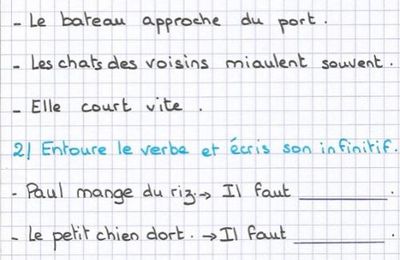 - Le bateau approche du port.
- Les chats des voisins miaulent souvent.
- Elle court vite.
2) Entoure le verbe et écris son infinitif.
- Paul mange du riz. → Il faut ________.
- Le petit chien dort. → Il faut ________.